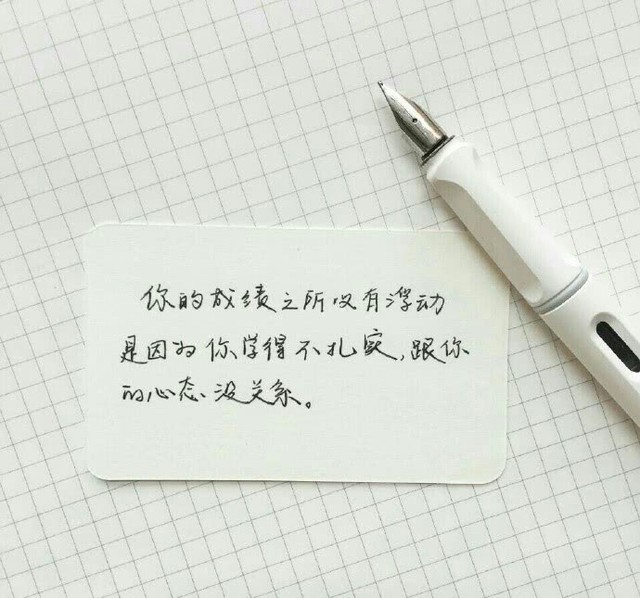 你的成绩之所以有浮动
是因为你学得不扎实,跟你
的心态没关系。